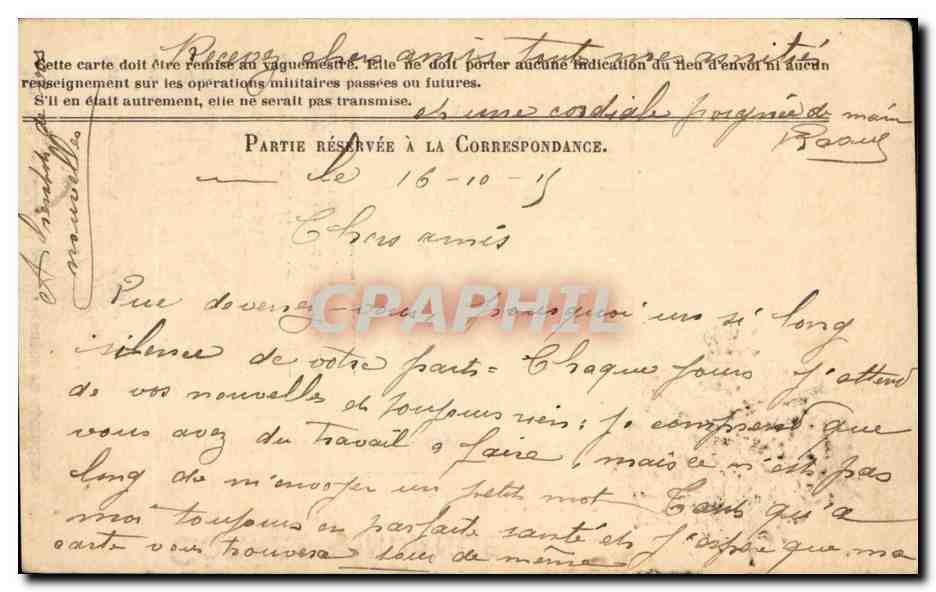 Recevez chers amis tout mes amitiés
Cette carte doit être remise au vaguemestre. Elle ne doit porter aucune indication du lieu d'envoi ni aucun
renseignement sur les opérations militaires passées ou futures.
S'il en était autrement, elle ne serait pas transmise.
et une cordiale poignée de main
Raoul
PARTIE RÉSERVÉE À LA CORRESPONDANCE.
le 16-10-15
Chers amis
Que devenez-vous, pourquoi un si long
silence de votre part = Chaque jours j'attend
de vos nouvelles et toujours rien; je comprend que
vous avez du travail a faire, mais ce n'est pas
long de m'envoyer un petit mot Tant qu'a
moi toujours en parfaite santé et j'espère que ma
carte vous trouvera tous de même
A bientôt de vos
nouvelles
CPARPHIL